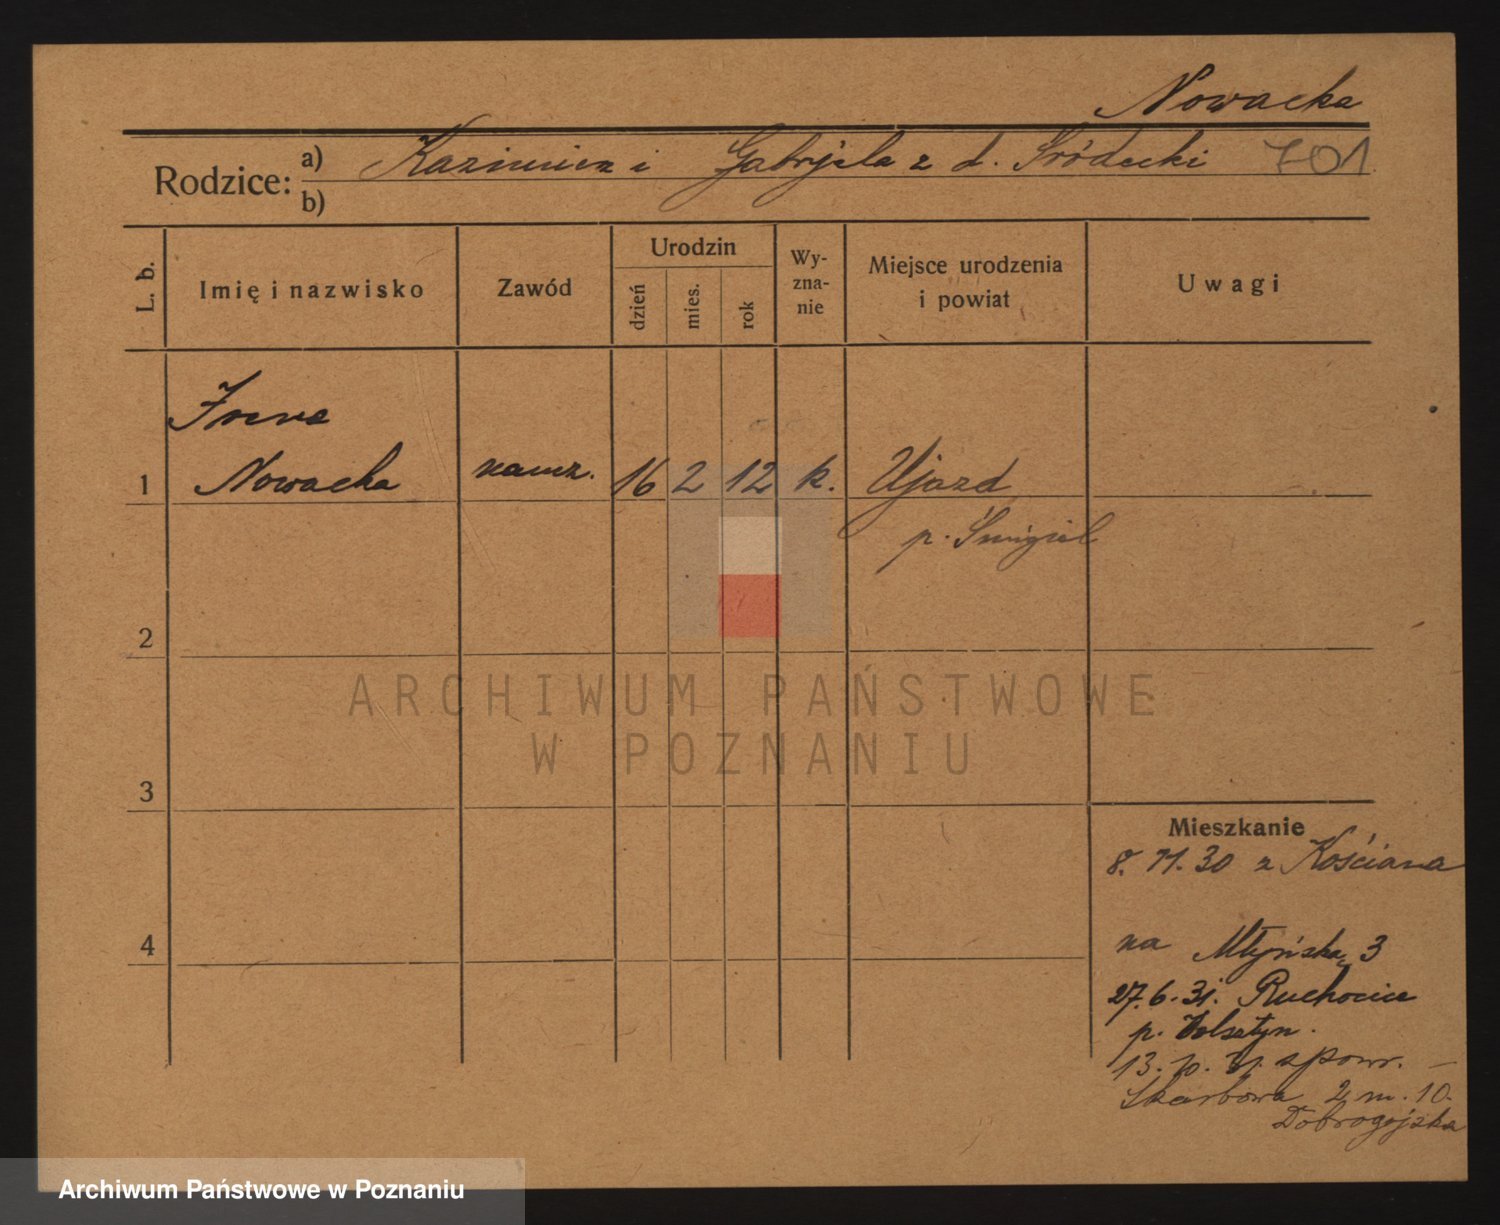 Nowacka
Rodzice: a) Kazimierz i Gabrjela z d. Śródecki 701
b)
L. b. Imię i nazwisko Zawód Urodzin dzień mies. rok Wy-zna-nie Miejsce urodzenia i powiat Uwagi
Irena
1 Nowacka naucz. 16 2 12 k. Ujazd
p. Śmigiel
2
ARCHIWUM PAŃSTWOWE
W POZNANIU
3
Mieszkanie
8. 11. 30 z Kościana
4
na Młyńską 3
27. 6. 31. Ruchocice
p. Wolsztyn.
13. 31. spowr. —
Skarbowa 2 m. 10.
Dobrogojska
Archiwum Państwowe w Poznaniu